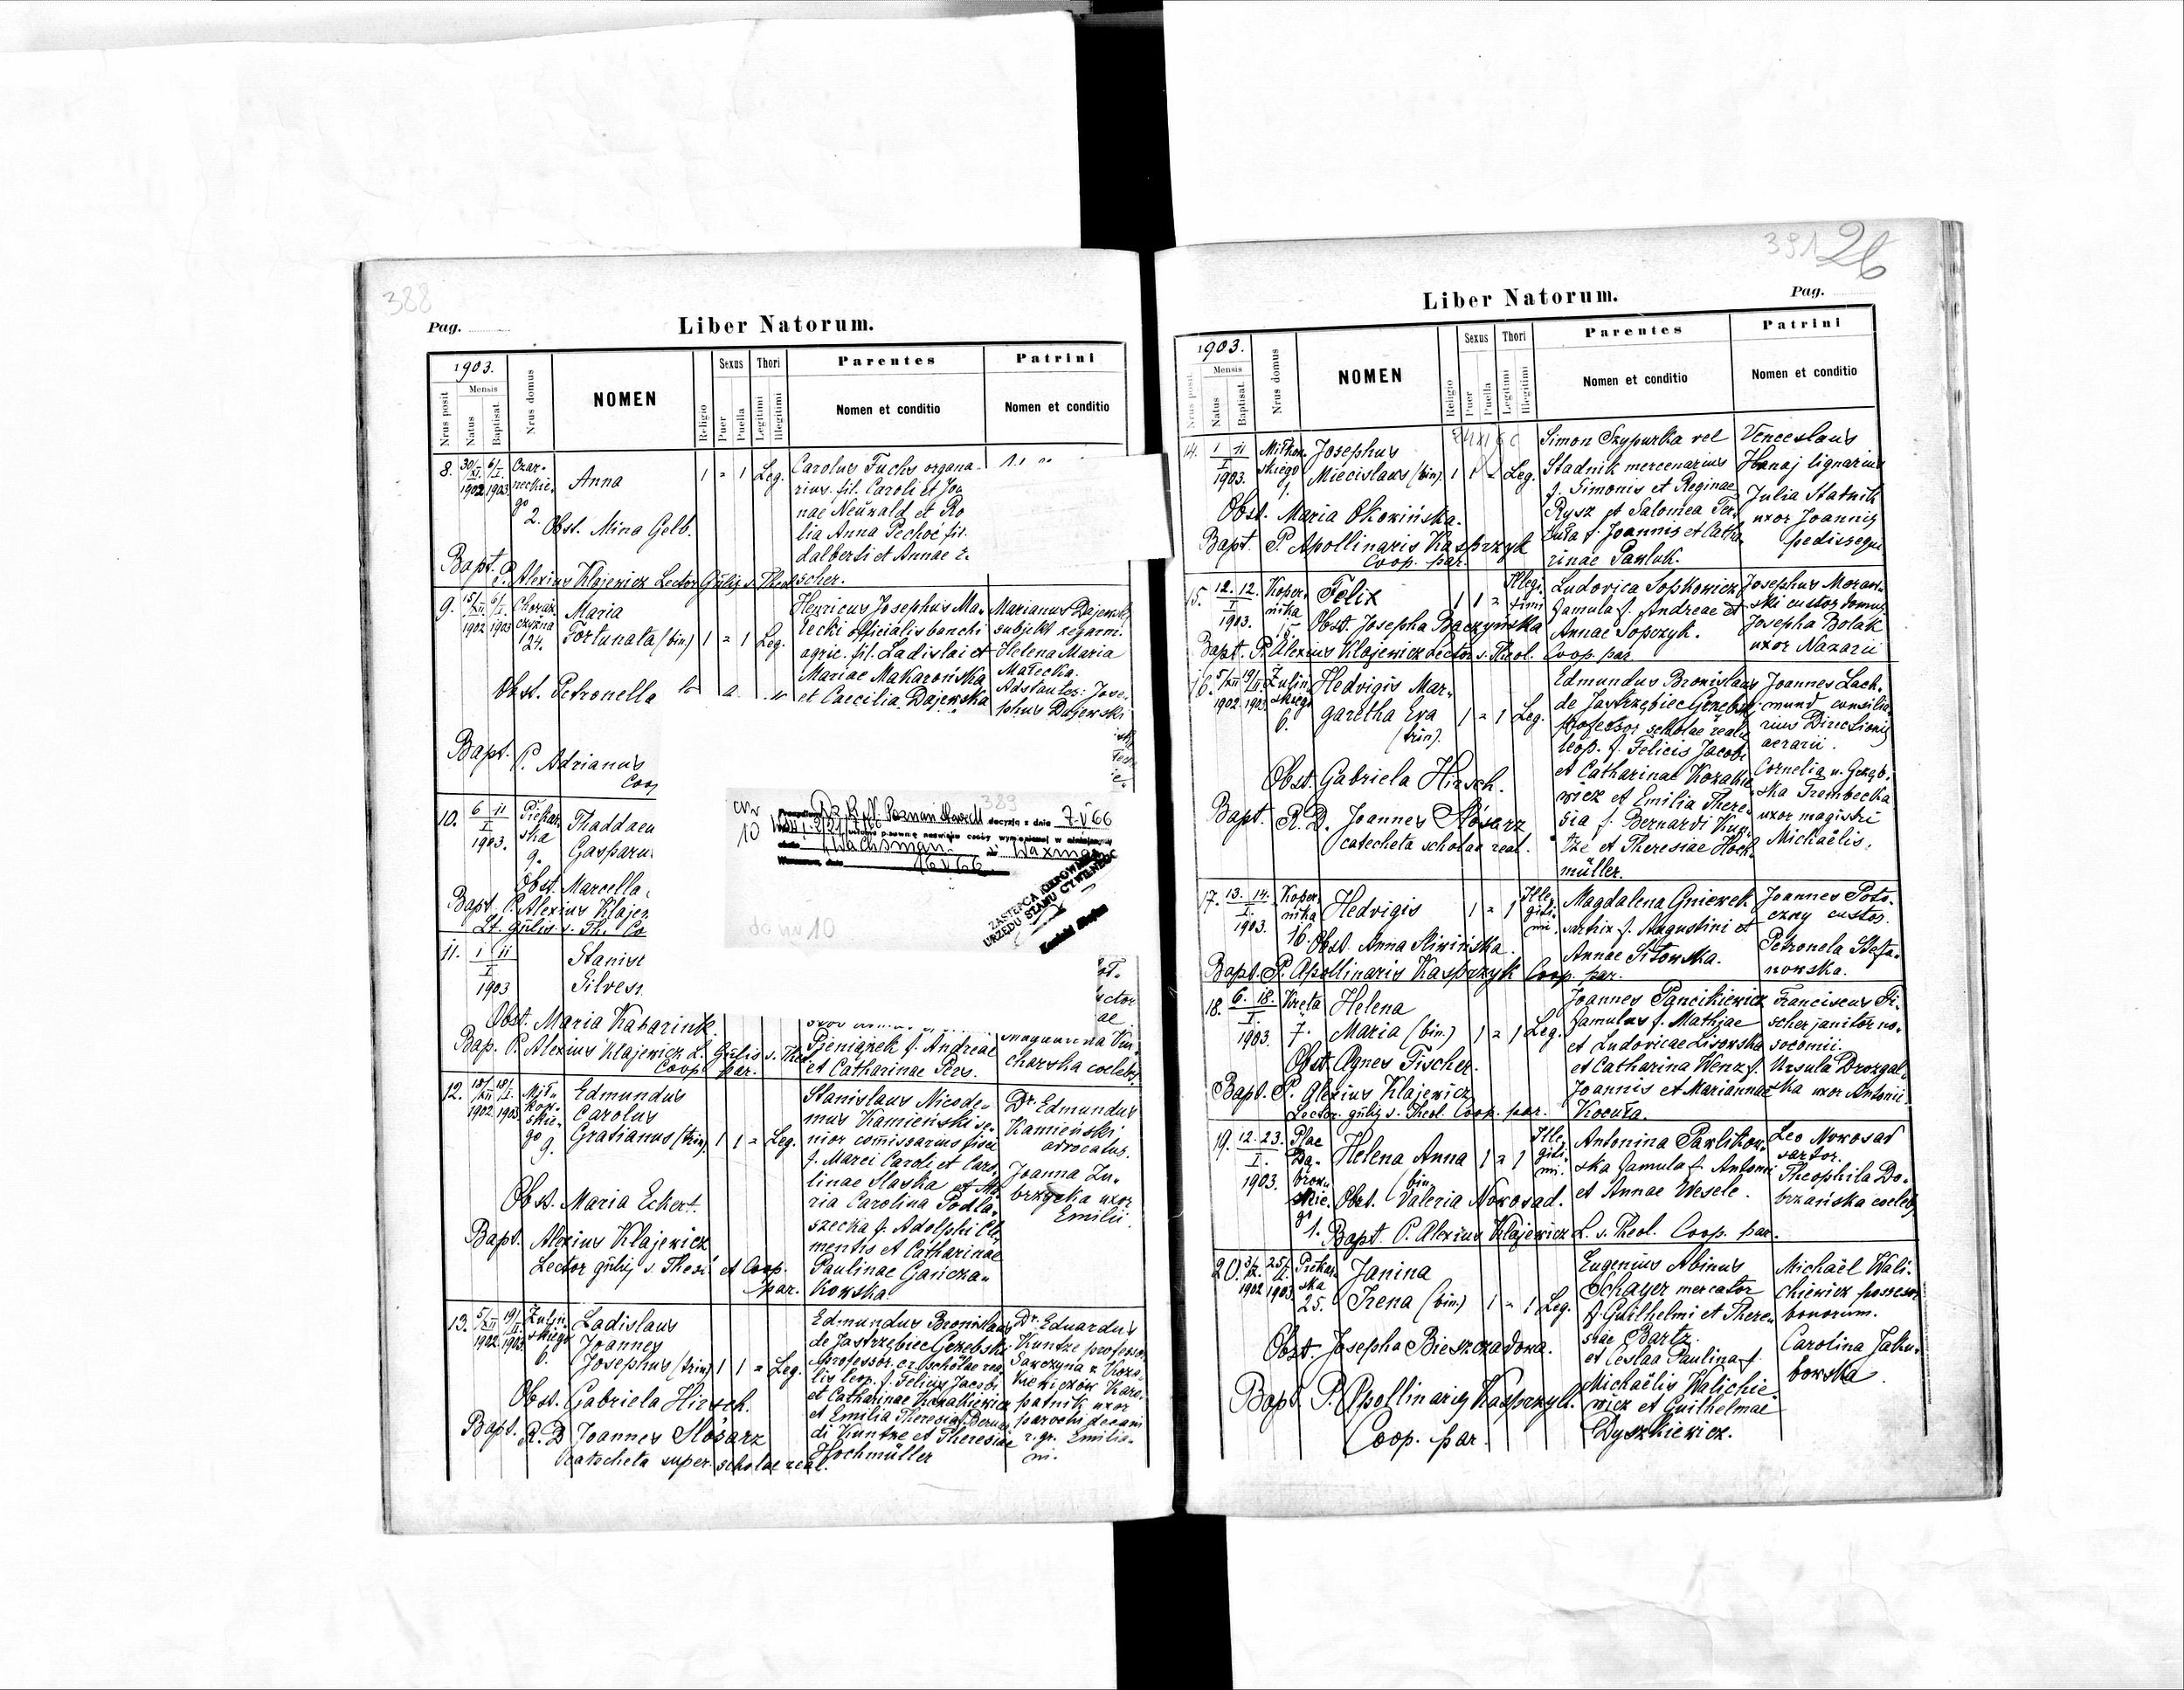 388
Pag.
Liber Natorum.
1903.
Nrus posit
Mensis
Natus
Baptisat.
Nrus domus
NOMEN
Religio
Sexus
Puer
Puella
Thori
Legitimi
Illegitimi
Parentes
Nomen et conditio
Patrini
Nomen et conditio
8. 30/XI. 1902 6/I. 1903 Czarneckiego 2. Anna 1 = 1 Leg.
Obst. Mina Gelb.
Bapt. P. Alexius Klajewicz Lector Gülig s. Theol
Carolus Fuchs organa-
rius fil. Caroli et Jo
nae Neuwald et Ro
lia Anna Pechoć fil.
dalberti et Annae
scher.
9. 15/XII. 1902 6/I. 1903 Chorąż
czyzna
24.
Maria
Fortunata (bin) 1 = 1 Leg.
Obst. Petronella
Bapt. P. Adrianus
Coop
Henricus Josephus Ma-
łecki officialis banchi
agric. fil. Ladislai et
Mariae Makarońska
et Caecilia Dajewska
Marianus Dajewski
subjekt
Helena Maria
Małecka.
Adstantes: Jose-
phus Dajewski
10. 6 11
I
1903.
Piekar
ska
9.
Thaddaeu
Gasparu
Obst. Marcella
Bapt. P. Alexius Klajew
Lt. gülig s. Th. Co
389
do nr 10
7.V 66
Wachsman
Waxman
16 V 66
ZASTĘPCA KIEROWNIKA
URZĘDU STANU CYWILNEGO
11. 1 11
I
1903
Stanisl
Silvest
Obst. Maria Katarink.
Bap. P. Alexius Klajewicz L. Gülig s. Theol.
Coop. par.
Pieniążek f. Andreae
et Catharinae Pers.
charska coelebs.
12. 13/XII 1902. 18/I. 1903
Miłkow
skie
go
9.
Edmundus
Carolus
Gratianus (trin) 1 1 = Leg.
Obst. Maria Eckert.
Bapt. Alexius Klajewicz
Lector gülig s. Theol et Coop.
par.
Stanislaus Nicode-
mus Kamieński se-
nior comissarius fisci
f. Marci Caroli et Caro-
linae Slaska et Ma
ria Carolina Podla-
szecka f. Adolphi Cle
mentis et Catharinae
Paulinae Gańcza-
kowska.
Dr. Edmundus
Kamieński
advocatus.
Joanna Za-
brzycka uxor
Emilii.
13. 5/XII 1902. 19/II. 1903.
Zulin
skiego
6.
Ladislaus
Joannes
Josephus (trin) 1 1 = Leg.
Obst. Gabriela Hirsch.
Bapt. R. D. Joannes Ślósarz
catecheta super. scholae real.
Edmundus Bronislaus
de Jastrzębiec Grzebski
Professor scholae rea
lis leop. f. Felicis Jacobi
et Catharinae Kozakiewicz
et Emilia Theresia f. Bernar
di Kuntze et Theresiae
Hochmüller
Dr. Eduardus
Kuntze professor
Sawczyna z Koza
kiewiczów Kar
patnik uxor
parochi decani
r. gr. Emilia-
ni.
391 26
Liber Natorum.
Pag.
1903.
Nrus posit
Mensis
Natus
Baptisat.
Nrus domus
NOMEN
Religio
Sexus
Puer
Puella
Thori
Legitimi
Illegitimi
Parentes
Nomen et conditio
Patrini
Nomen et conditio
14. 1 11
I
1903.
Miłkow
skiego
1.
Josephus
Miecislaus (bin) 1 1 = Leg.
Obst. Maria Okowińska.
Bapt. P. Apollinaris Kasprzyk
Coop. par.
Simon Szypurka vel
Stadnik mercenarius
f. Simonis et Reginae
Rysz et Salomea Fer-
f. Joannis et Catha
rinae Pawluk.
Venceslaus
Hanaj lignarius
Julia Stadnik
uxor Joannis
pedissequi
15. 12. 12.
I
1903.
Koper
nika
15
Felix 1 1 = Illegi
timi
Obst. Josepha Baczyńska
Bapt. P. Alexius Klajewicz Lector s. Theol. Coop. par
Ludovica Sophowicz
famula f. Andreae et
Annae Sopczyk.
Josephus Moraw-
ski custos domus
Josepha Bolak
uxor Nazarii
16. 5/XII 1902. 19/II 1903
Zulin
skiego
6.
Hedvigis Mar-
garetha Eva
(trin). 1 = 1 Leg.
Obst. Gabriela Hirsch.
Bapt. R. D. Joannes Ślósarz
catecheta scholae real.
Edmundus Bronislaus
de Jastrzębiec Grzebski
professor scholae realis
leop. f. Felicis Jacobi
et Catharinae Kozakie
wicz et Emilia There-
sia f. Bernardi Kun-
tze et Theresiae Hoch-
müller.
Joannes Lach-
mund consilia
rius Directionis
aerarii.
Cornelia n. Grzęb-
ska Trembecka
uxor magistri
Michaëlis.
17. 13. 14.
I.
1903.
Koper
nika
16
Hedvigis 1 = 1 Ille
giti
mi.
Obst. Anna Śliwińska.
Bapt. P. Apollinaris Kasprzyk Coop. par.
Magdalena Gniewek
sartrix f. Augustini et
Annae Sitowska.
Joannes Poto-
czny custos.
Petronela Stefa-
nowska.
18. 6. 18.
I.
1903
Kręta
7.
Helena
Maria (bin.) 1 = 1 Leg.
Obst. Agnes Fischer.
Bapt. P. Alexius Klajewicz
Lector. gülig s. Theol. Coop. par.
Joannes Pancikiewicz
famulus f. Mathiae
et Ludovicae Lisowska
et Catharina Wenz f.
Joannis et Mariannae
Kocuła.
Franciscus Fi-
scher janitor no-
socomii.
Ursula Drozgal-
ska uxor Antonii.
19. 12. 23.
I.
1903.
Plac
Dą-
brow
skie
go
1.
Helena Anna
(bin 1 = 1 Ille
giti
mi.
Obst. Valeria Nowosad.
Bapt. P. Alexius Klajewicz L. s. Theol. Coop. par.
Antonina Pawlikow-
ska famula f. Antoni
et Annae Wesele.
Leo Nowosad
sartor.
Theophila Do-
brzańska coelebs
20. 1902 25/I. 1903
Piekar
ska
25.
Janina
Irena (bin.) 1 = 1 Leg.
Obst. Josepha Bieszczadowa.
Bapt. P. Apollinaris Kasprzyk.
Coop. par.
Eugenius Abinus
Schayer mercator
f. Guilhelmi et There-
siae Bartz.
et Ceslaa Paulina f.
Michaëlis Walichie-
wicz et Guilhelmae
Dyszkiewicz.
Michaël Wali-
chiewicz possesor
bonorum.
Carolina Jaku-
bowska.